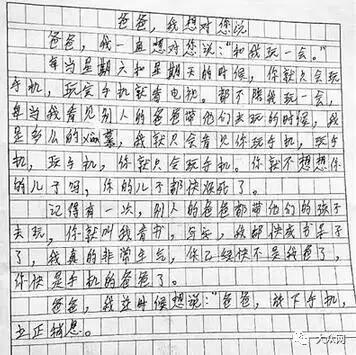 爸爸，我想对您说
爸爸，我一直想对您说："和我玩一会。"
每当星期六和星期天的时候，你就只会玩
手机，玩完手机就看电视。都不陪我玩一会，
每当我看见别人的爸爸带他们去玩的时候，我
是多么的xiàn慕，我就只会看见你玩手机，玩手
机，玩手机，你就只会玩手机。你就不想想你
的儿子吗，你的儿子都快疯死了。
记得有一次，别人的爸爸都带他们的孩子
去玩，你就叫我看书，写字，我都快成书呆子
了，我真的非常生气，你已经快不是我爸了，
你快是手机的爸爸了。
爸爸，我这时候想说："爸爸，放下手机，
立正稍息。
大众网